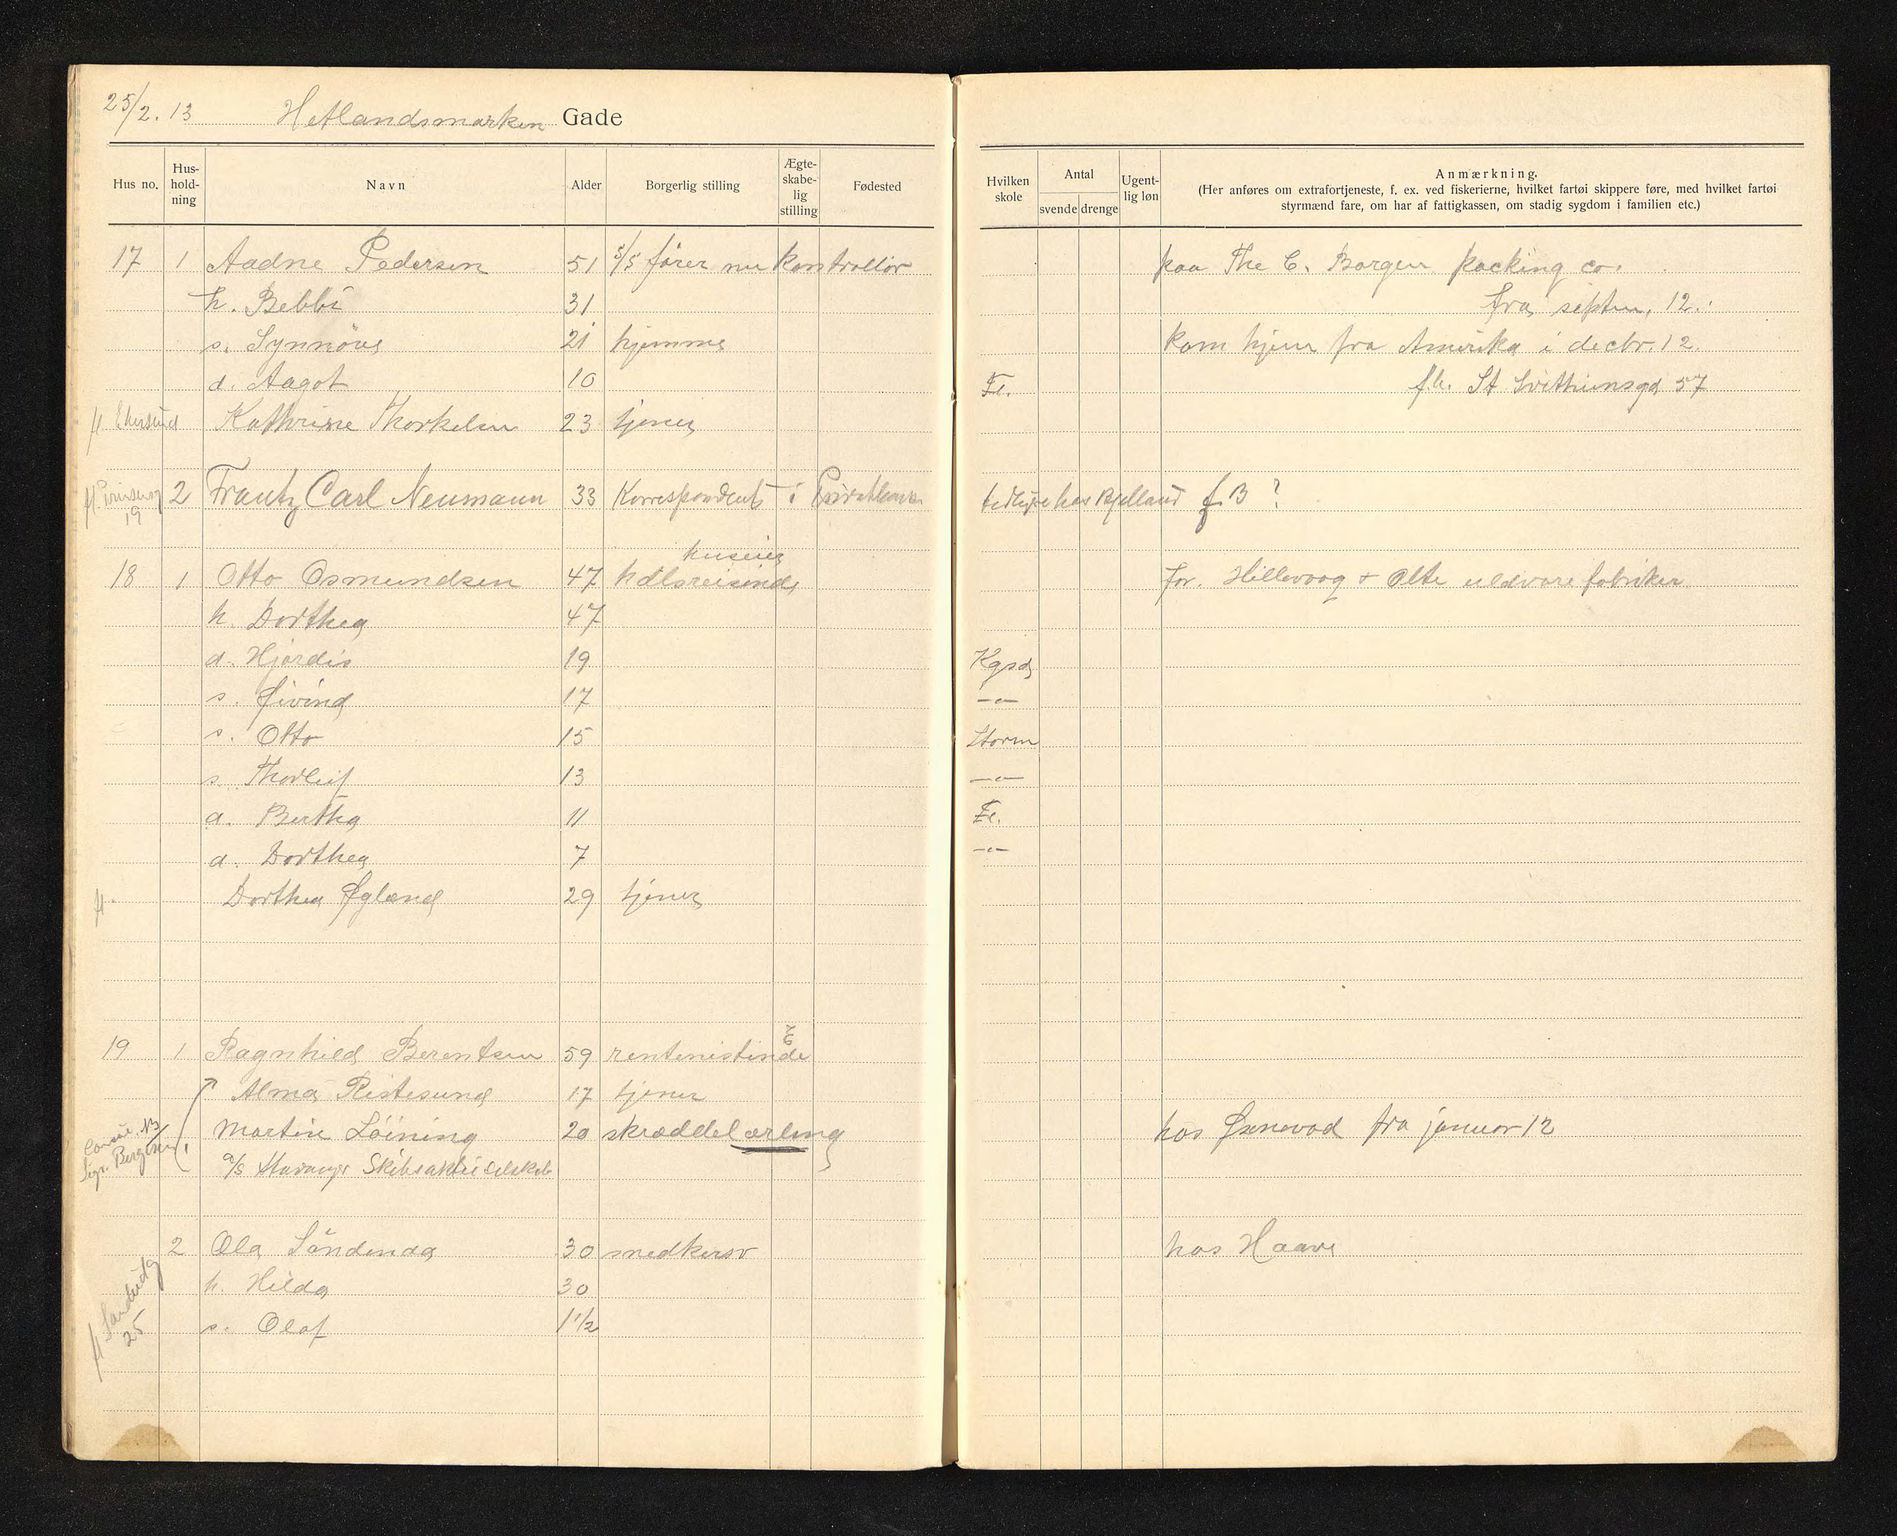 25/2. 13 Hetlandsmarken Gade
Hus no. Hus-hold-ning Navn Alder Borgerlig stilling Ægte-skabe-lig stilling Fødested Hvilken skole Antal svende drenge Ugent-lig løn Anmærkning.
(Her anføres om extrafortjeneste, f. ex. ved fiskerierne, hvilket fartøi skippere føre, med hvilket fartøi
styrmænd fare, om har af fattigkassen, om stadig sygdom i familien etc.)
17 1 Aadne Pedersen 51 s/s fører nu kontrollør paa The C. Borgen packing co.
h. Bebbi 31 fra septbr. 12.
s. Synnöve 21 hjemme kom hjem fra Amerika i decbr. 12.
d. Aagot 10 Fr. fh. St Svithunsgd 57
fl. Ekersund Kathrine Thorkelsen 23 tjener
2 Frantz Carl Neumann 33 Korrespondent i Privatbanken tidligere hos Bjelland f. B ?
19
huseier
18 1 Otto Osmundsen 47 hdlsreisende for Hillevaag & Olte uldvare fabriker
h. Dorthea 47
d. Hjørdis 19 Kgsd
s. Øivind 17 —"—
s. Otto 15 Storm
s. Thorleif 13 —"—
d. Bertha 11 Fr.
d. Dorthea 7 —"—
fl. Dorthea Øgland 29 tjener
19 1 Ragnhild Berentsen 59 rentenistinde E
Alma Ristesund 17 tjener
Martin Löining 20 skræddelærling hos Grnevad fra januar 12
Sigv. Bergesen a/s Stavanger Skibsaktieselskab
2 Ola Söndenaa 30 snedkersv hos Haave
h. Hilda 30
s. Olaf 1 1/2
fl
25